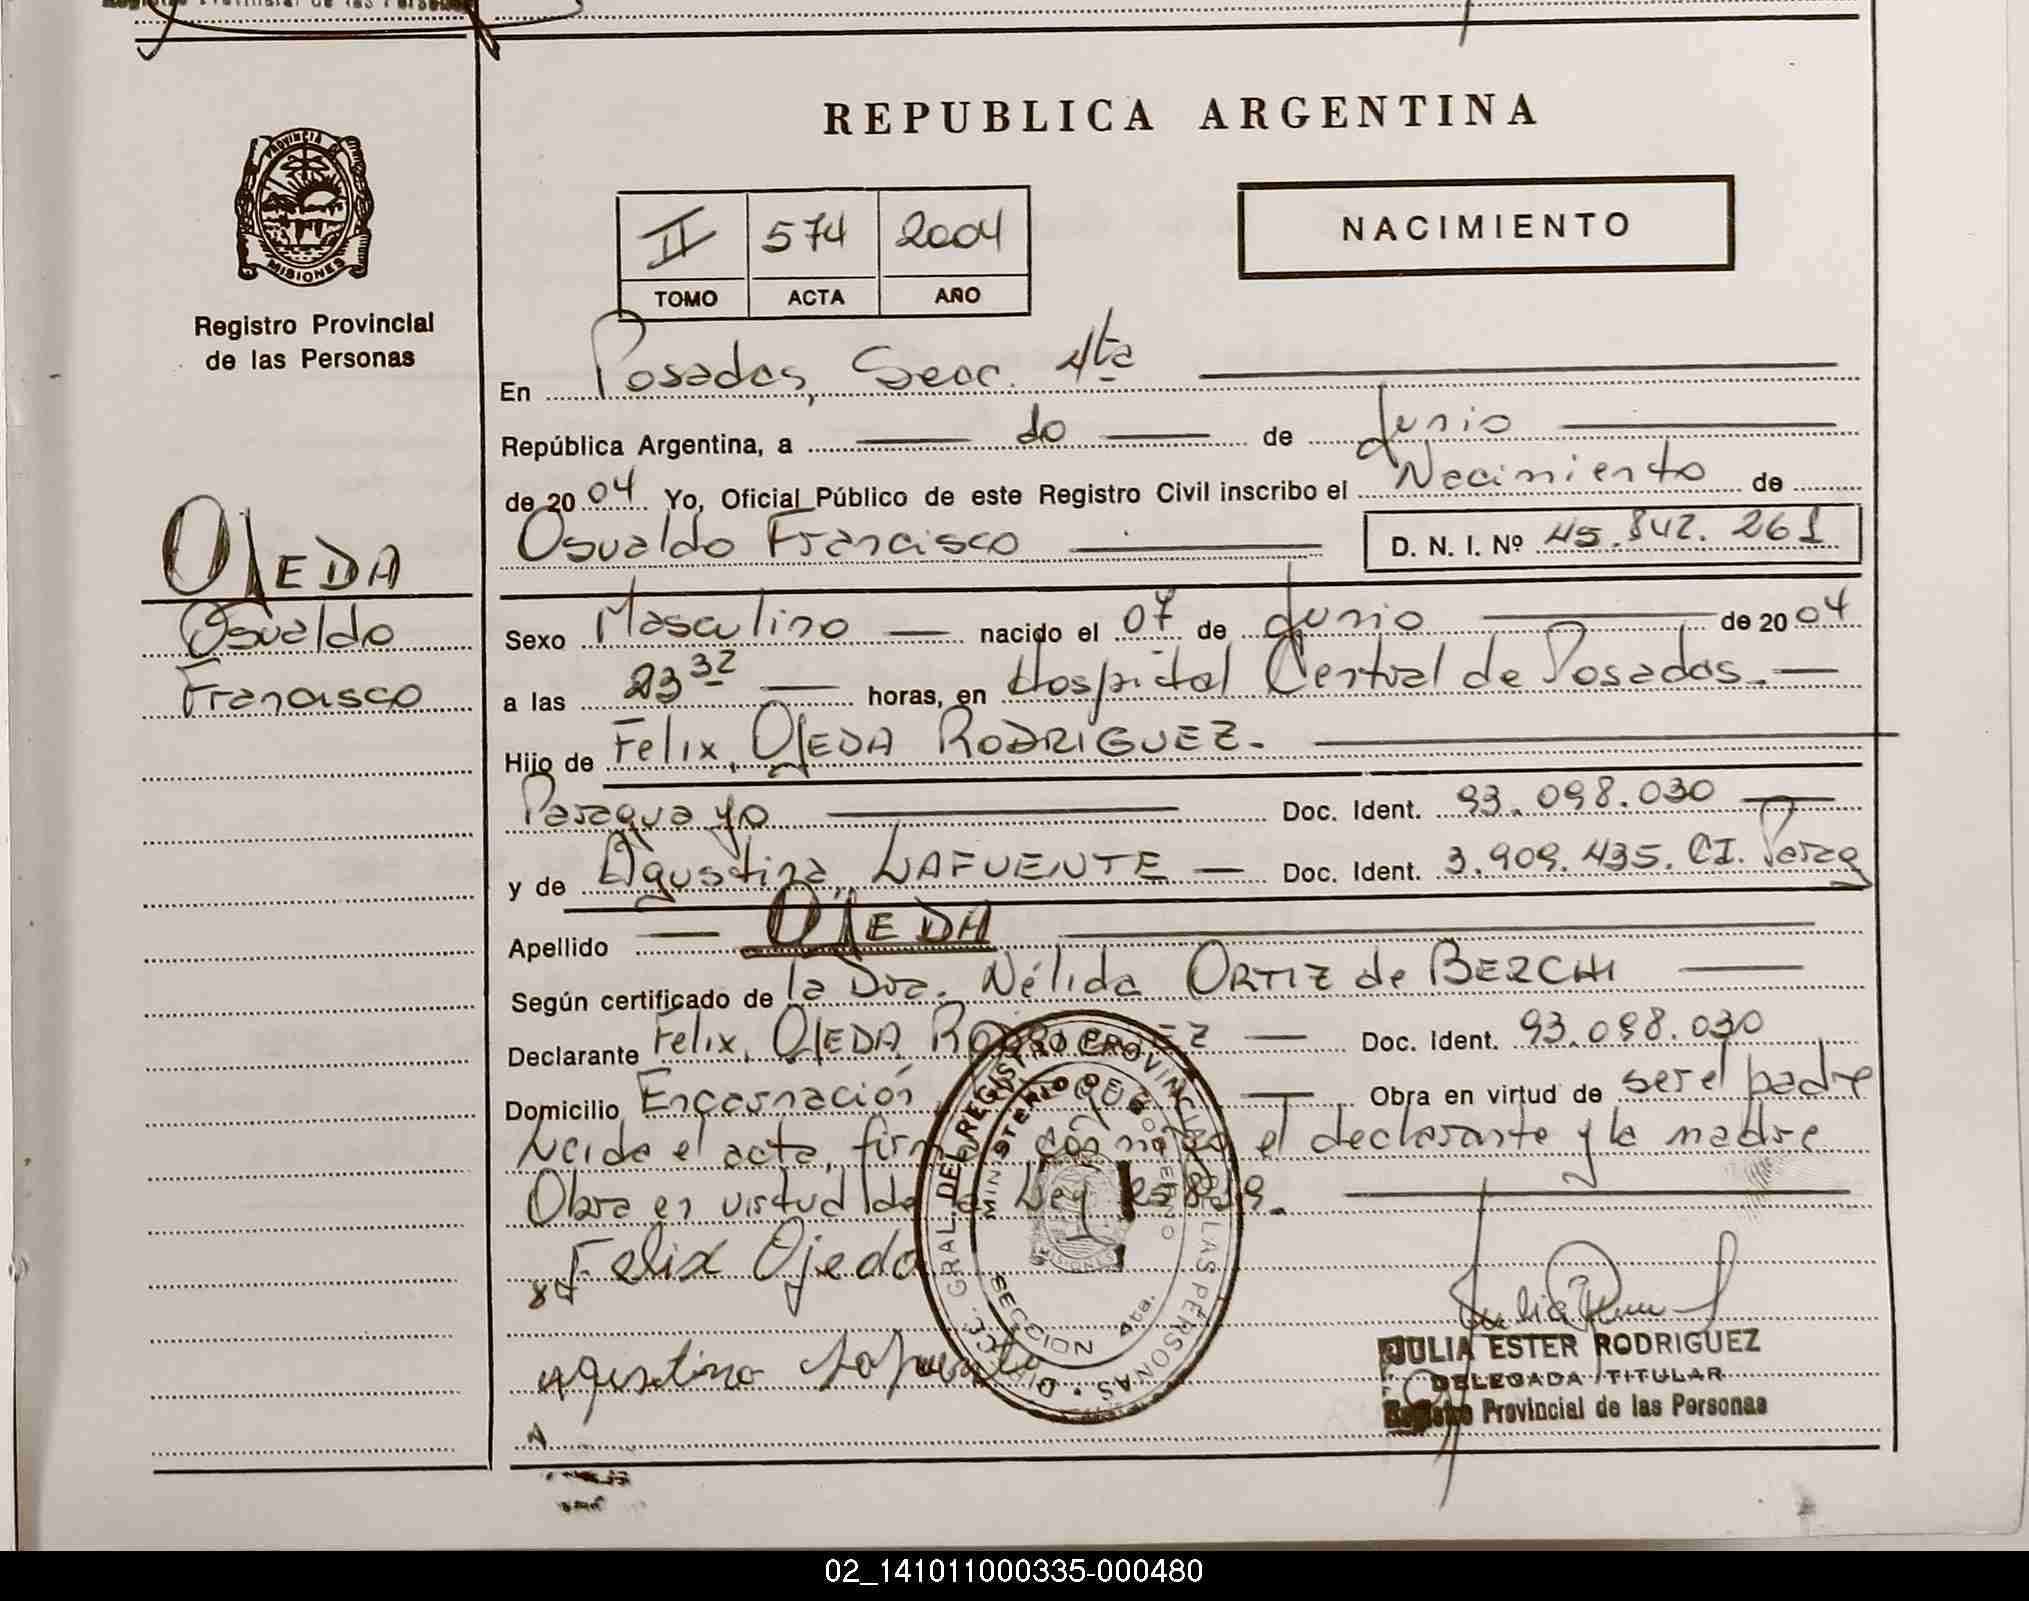 REPUBLICA ARGENTINA
PROVINCIA DE
MISIONES
Registro Provincial
de las Personas
NACIMIENTO
II 574 2004
TOMO ACTA AÑO
En Posadas, Secc. 4ta
República Argentina, a do de Junio
de 2004 Yo, Oficial Público de este Registro Civil inscribo el Nacimiento de
Osvaldo Francisco D. N. I. Nº 45.842.261
OJEDA
Osvaldo
Francisco
Sexo Masculino nacido el 07 de Junio de 2004
a las 23 32 horas, en Hospital Central de Posadas.
Hijo de Felix, OJEDA RODRIGUEZ.
Paraguayo Doc. Ident. 93.098.030
y de Agustina, LAFUENTE Doc. Ident. 3.909.435. CI. Parag
Apellido OJEDA
Según certificado de la Dra. Nélida ORTIZ de BERCHI
Declarante Felix, OJEDA RODRIGUEZ Doc. Ident. 93.098.030
Domicilio Encarnación Obra en virtud de ser el padre
Leida el acta, firman conmigo el declarante y la madre
Obra en virtud de la Ley
Felix Ojeda
Agustina Lafuente
DIRECC. GRAL. DEL REGISTRO PROVINCIAL DE LAS PERSONAS
MINISTERIO DE GOBIERNO
SECCION 4ta.
JULIA ESTER RODRIGUEZ
DELEGADA TITULAR
Registro Provincial de las Personas
02_141011000335-000480